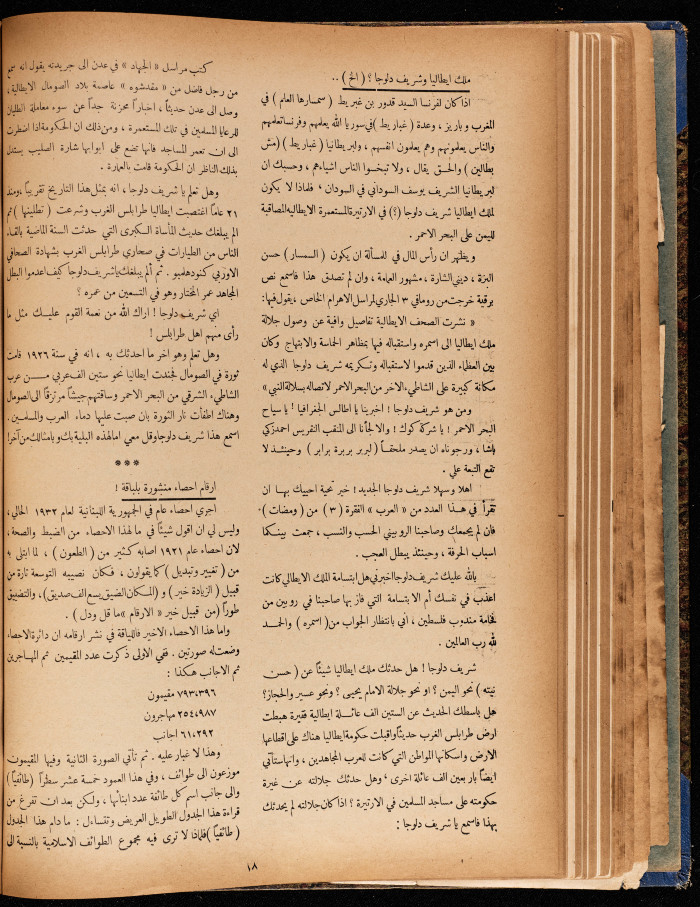 ملك ايطاليا وشريف دلوجا ؟ ( الخ ) ..
اذا كان لفرنسا السيد قدور بن غبريط ( سمسارها العام ) في
المغرب وباريز ، وعدة ( غباريط ) في سوريا الله يعلمهم وفرنسا تعلمهم
والناس يعلمونهم وهم يعلمون انفسهم ، ولبريطانيا ( غباريط ) ( مش
بطالين ) والحق يقال ، ولا تبخسوا الناس اشياءهم ، وحسبك ان
لبريطانيا الشريف يوسف السوداني في السودان ، فلماذا لا يكون
لملك ايطاليا شريف دلوجا (؟) في الارتيرة المستعمرة الايطاليه المصاقبة
لليمن على البحر الاحمر .
ويظهر ان رأس المال في المسألة ان يكون ( السمسار ) حسن
البزة ، ديني الشارة ، مشهور العمامة ، وان لم تصدق هذا فاسمع نص
برقية خرجت من روما في ٣ الجاري لمراسل الاهرام الخاص ، يقول فيها :
« نشرت الصحف الايطالية تفاصيل وافية عن وصول جلالة
ملك ايطاليا الى اسمره واستقباله فيها بمظاهر الحماسة والابتهاج وكان
بين العظماء الذين قدموا لاستقباله وتكريمه شريف دلوجا الذي له
مكانة كبيرة على الشاطيء الاخر من البحر الاحمر لاتصاله بسلالة النبي »
ومن هو شريف دلوجا ! اخبرينا يا اطالس الجغرافيا ! يا سياح
البحر الاحمر ! يا شركة كوك ! والا لجأنا الى المنقب النقريس احمد زكي
باشا ، ورجوناه ان يصدر ملحقاً ( لبربر بربرة برابر ) وحينئذ لا
تقع التبعة علي .
اهلا وسهلا شريف دلوجا الجديد ! خبر تحية احييك بها ان
تقرأ في هذا العدد من « العرب » الفقرة ( ٣ ) من ( ومضات )
فان لم يجمعك وصاحبنا الروبيني الحسب والنسب ، جمعت بينكما
اسباب الحرفة ، وحينئذ يبطل العجب .
بالله عليك شريف دلوجا اخبرني هل ابتسامة الملك الايطالي كانت
اعذب في نفسك أم الابتسامة التي فاز بها صاحبنا في روبين من
فخامة مندوب فلسطين ، اني بانتظار الجواب من ( اسمره ) والحمد
لله رب العالمين .
شريف دلوجا ! هل حدثك ملك ايطاليا شيئاً عن ( حسن
نيته ) نحو اليمن ؟ او نحو جلالة الامام يحيى ؟ ونحو عسير والحجاز ؟
هل باسطك الحديث عن الستين الف عائلة ايطالية فقيرة هبطت
ارض طرابلس الغرب حديثاً واقبلت حكومة ايطاليا هناك على اقطاعها
الارض واسكانها المواطن التي كانت للعرب المجاهدين ، وانها ستأتي
ايضاً باربعين الف عائلة اخرى ، وهل حدثك جلالته عن غيرة
حكومته على مساجد المسلمين في الارتيرة ؟ اذا كان جلالته لم يحدثك
بهذا فاسمع يا شريف دلوجا :
كتب مراسل « الجهاد » في عدن الى جريدته يقول انه سمع
من رجل فاضل من « مقدشوه » عاصمة بلاد الصومال الايطالية ،
وصل الى عدن حديثاً ، اخباراً محزنة جداً عن سوء معاملة الطليان
للرعايا المسلمين في تلك المستعمرة ، ومن ذلك ان الحكومة اذا اضطرت
الى ان تعمر المساجد فانها تضع على ابوابها شارة الصليب يستدل
بذلك الناظر ان الحكومة قامت بالعمارة .
وهل تعلم يا شريف دلوجا ، انه بمثل هذا التاريخ تقريباً ، ومنذ
٢١ عاماً اغتصبت ايطاليا طرابلس الغرب وشرعت ( تطلينها ) ثم
الم يبلغك حديث المأساة الكبرى التي حدثت السنة الماضية بالقاء
الناس من الطيارات في صحاري طرابلس الغرب بشهادة الصحافي
الاوربي كنود هلمبو . ثم ألم يبلغك يا شريف دلوجا كيف اعدموا البطل
المجاهد عمر المختار وهو في التسعين من عمره ؟
اي شريف دلوجا ! اراك الله من نعمة القوم عليك مثل ما
رأى منهم اهل طرابلس !
وهل تعلم وهو اخر ما احدثك به ، انه في سنة ١٩٢٦ قامت
ثورة في الصومال فجندت ايطاليا نحو ستين الف عربي من عرب
الشاطيء الشرقي من البحر الاحمر وساقتهم جيشاً مرتزقاً الى الصومال
وهناك اطفأت نار الثورة بان صبت عليها دماء العرب والمسلمين .
اسمع هذا شريف دلوجا وقل معي اما لهذه البلية بك وبامثالك من آخر !
***
ارقام احصاء منشورة بلباقة !
اجري احصاء عام في الجمهورية اللبنانية لعام ١٩٣٢ الحالي ،
وليس لي ان اقول شيئاً في ما لهذا الاحصاء من الضبط والصحة ،
لان احصاء عام ١٩٢١ اصابه كثير من ( الطعون ) ، لما ابتلى به
من ( تغيير وتبديل ) كما يقولون ، فكان نصيبه التوسعة تارة من
قبيل ( الزيادة خير ) و ( المكان الضيق يسع الف صديق ) ، والتضييق
طوراً ( من قبيل خير « الارقام » ما قل ودل ) .
واما هذا الاحصاء الاخير فاللباقة في نشر ارقامه ان دائرة الاحصاء
وضعت له صورتين . ففي الاولى ذكرت عدد المقيمين ثم المهاجرين
ثم الاجانب هكذا :
٧٩٣،٣٩٦ مقيمون
٢٥٤،٩٨٧ مهاجرون
٦١،٢٩٢ اجانب
وهذا لا غبار عليه . ثم تأتي الصورة الثانية وفيها المقيمون
موزعون الى طوائف ، وفي هذا العمود خمسة عشر سطراً ( طائفياً )
والى جانب اسم كل طائفة عدد ابنائها ، ولكن بعد ان تفرغ من
قراءة هذا الجدول الطويل العريض وتتساءل : ما دام هذا الجدول
( طائفياً ) فلماذا لا ترى فيه مجموع الطوائف الاسلامية بالنسبة الى
١٨